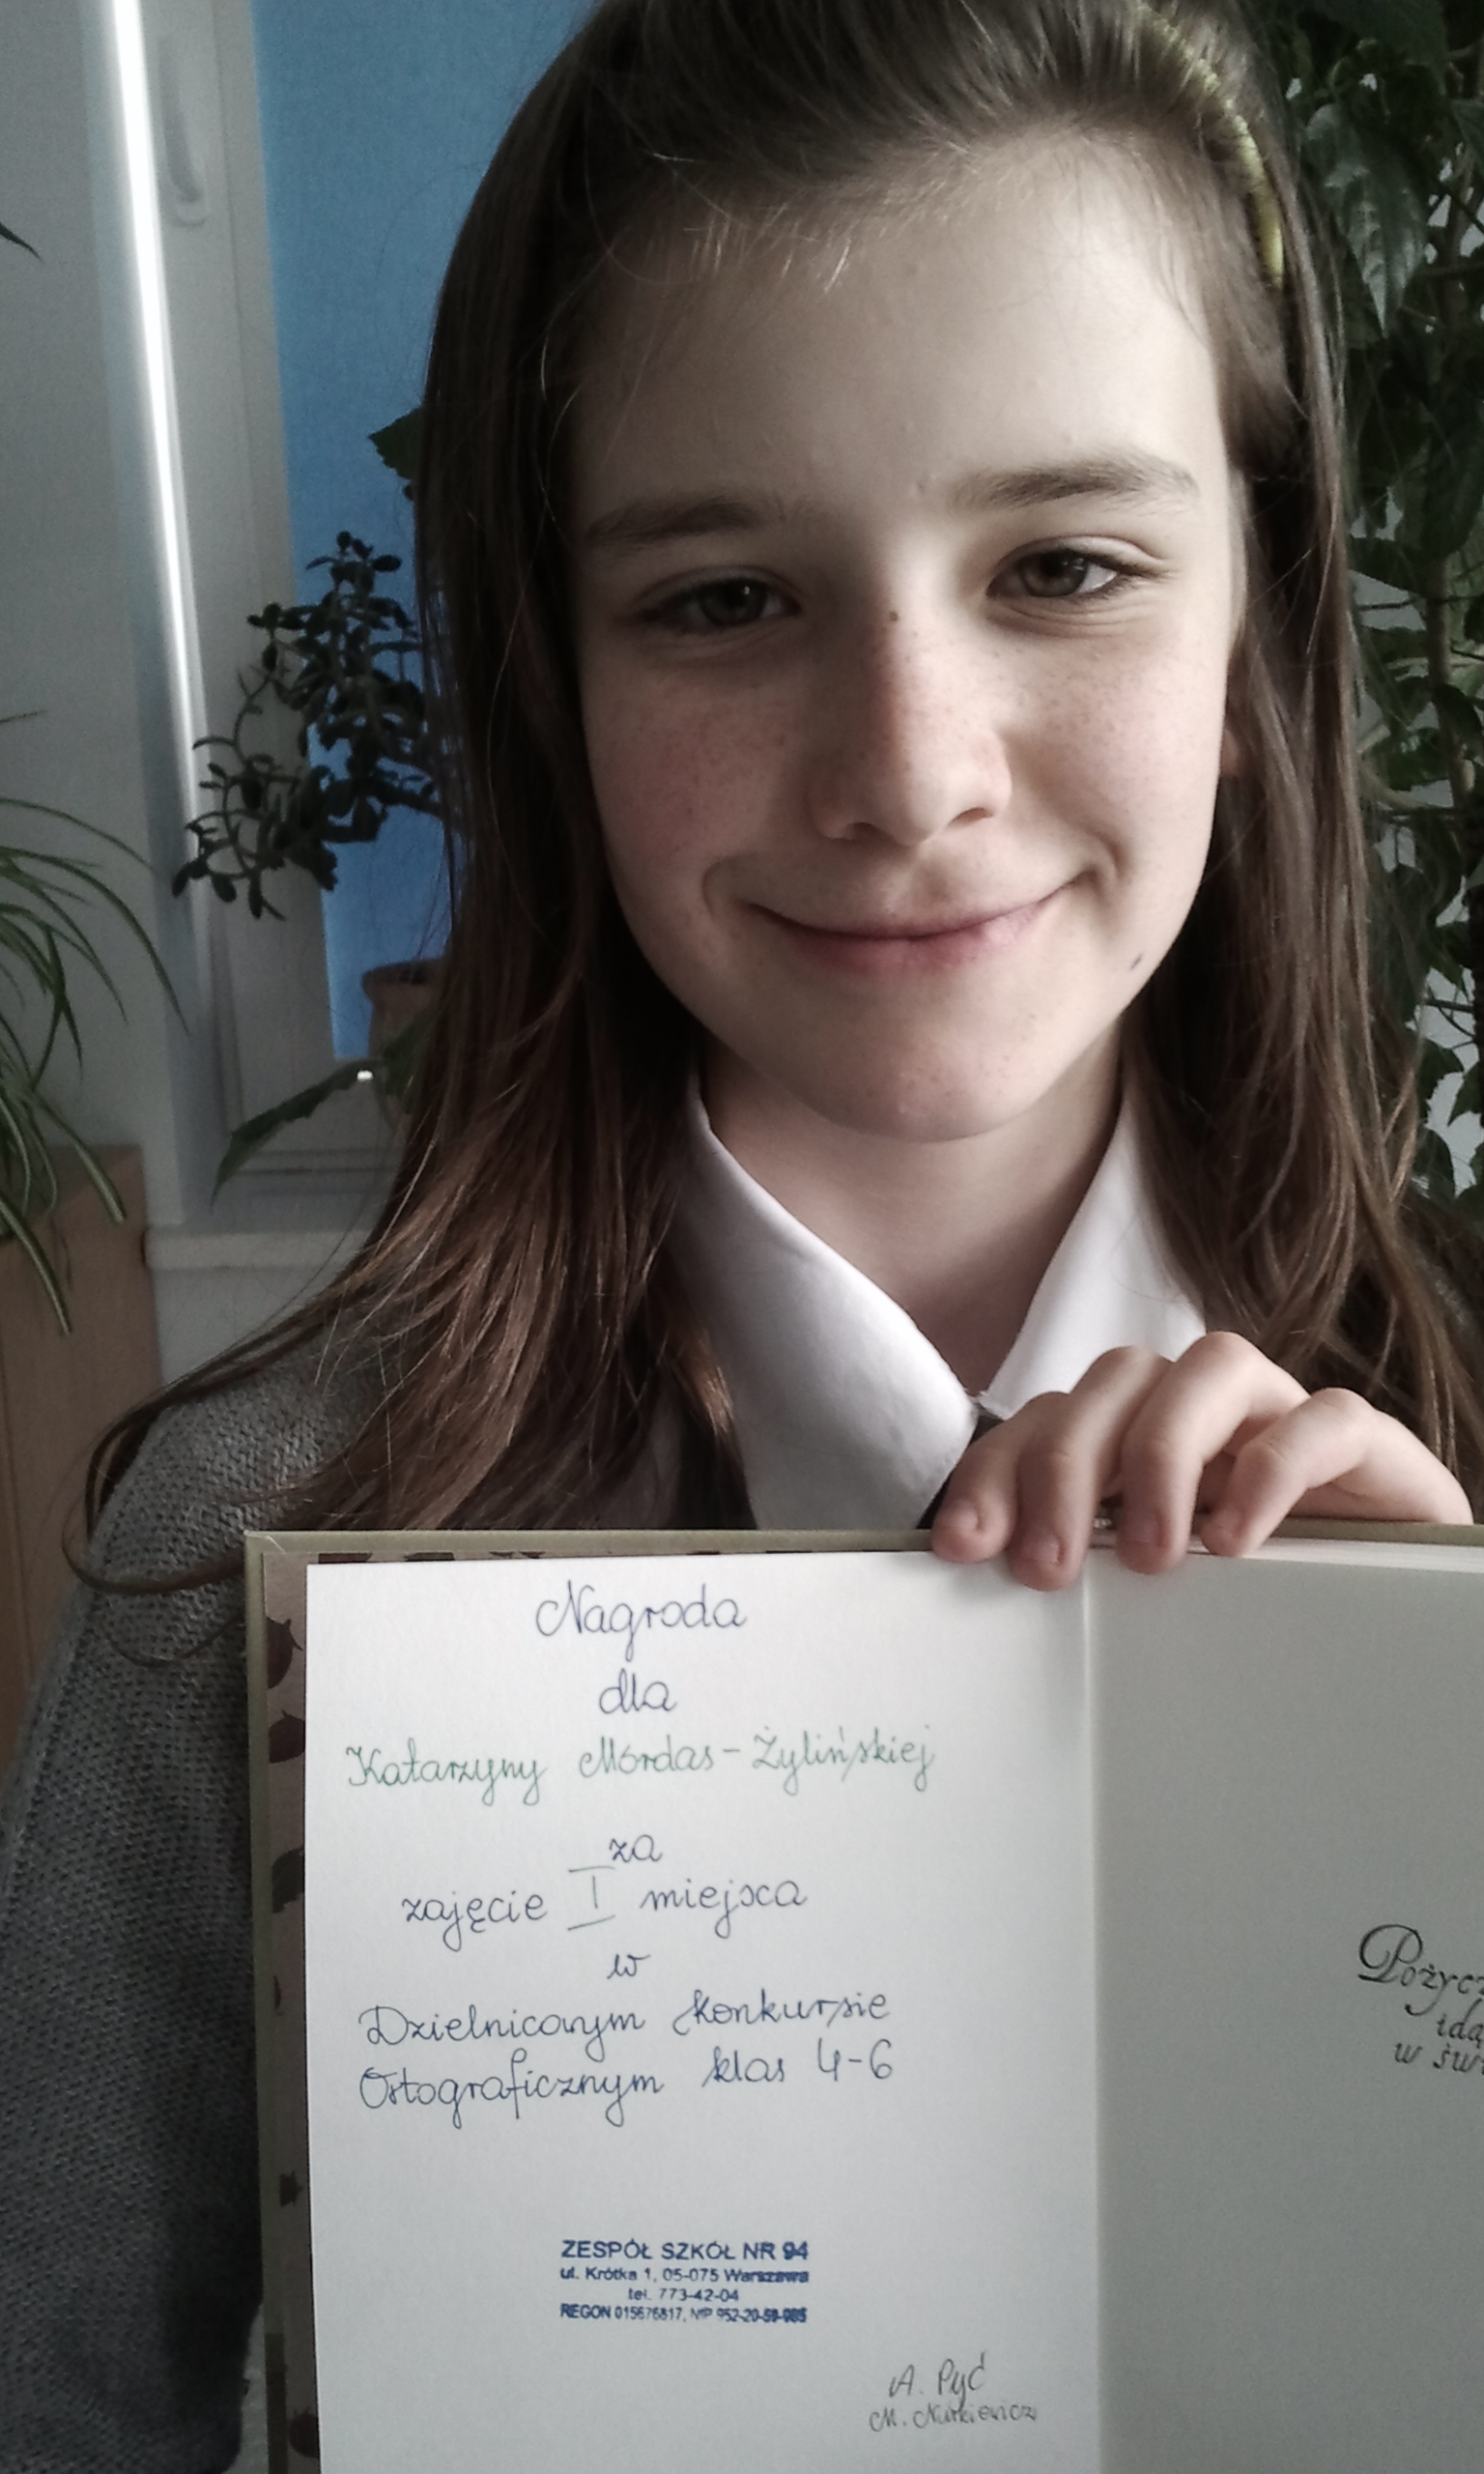 Nagroda
dla
Katarzyny Mórdas-Żylińskiej
za
zajęcie I miejsca
w
Dzielnicowym Konkursie
Ortograficznym klas 4-6
ZESPÓŁ SZKÓŁ NR 94
ul. Krótka 1, 05-075 Warszawa
tel. 773-42-04
REGON 015676817, NIP 952-20-59-985
A. Pyć
M. Nurkiewicz
Pożycz
idą
w św